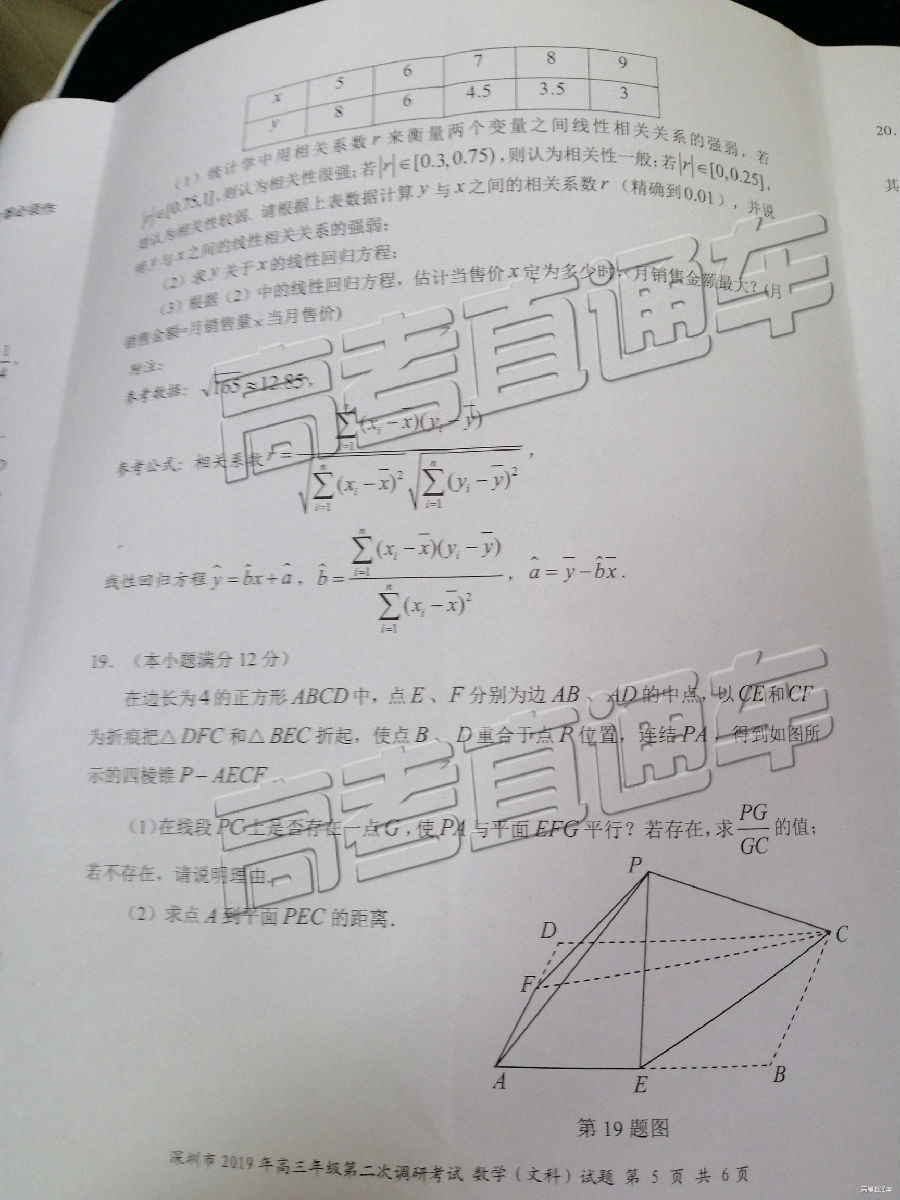 x 5 6 7 8 9
y 8 6 4.5 3.5 3
(1)统计学中用相关系数r来衡量两个变量之间线性相关关系的强弱,若
|r|∈[0.75,1],则认为相关性很强;若|r|∈[0.3,0.75),则认为相关性一般;若|r|∈[0,0.25],
则认为相关性较弱.请根据上表数据计算y与x之间的相关系数r(精确到0.01),并说
明y与x之间的线性相关关系的强弱;
(2)求y关于x的线性回归方程;
(3)根据(2)中的线性回归方程,估计当售价x定为多少时,月销售金额最大?(月
销售金额=月销售量×当月售价)
附注:
参考数据:√165≈12.85,
参考公式:相关系数r=∑(i=1→n)(xᵢ-x̄)(yᵢ-ȳ)/(√∑(i=1→n)(xᵢ-x̄)²√∑(i=1→n)(yᵢ-ȳ)²),
线性回归方程ŷ=b̂x+â,b̂=∑(i=1→n)(xᵢ-x̄)(yᵢ-ȳ)/∑(i=1→n)(xᵢ-x̄)²,â=ȳ-b̂x̄.
19.(本小题满分12分)
在边长为4的正方形ABCD中,点E、F分别为边AB、AD的中点,以CE和CF
为折痕把△DFC和△BEC折起,使点B、D重合于点P位置,连结PA,得到如图所
示的四棱锥P-AECF.
(1)在线段PC上是否存在一点G,使PA与平面EFG平行?若存在,求PG/GC的值;
若不存在,请说明理由.
(2)求点A到平面PEC的距离.
P
D
C
F
A
E
B
第19题图
深圳市2019年高三年级第二次调研考试 数学(文科)试题 第5页 共6页
20.
其
1/4
高考直通车
高考直通车